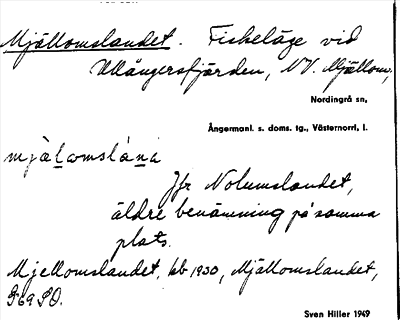 Mjällomslandet. Fiskeläge vid
Ullångersfjärden, NV. Mjällom,
Nordingrå sn,
Ångermanl. s. doms. tg., Västernorrl, l.
Jfr Nolumslandet,
äldre benämning på samma
plats.
Mjellomslandet, kb 1930, Mjällomslandet,
Sven Hiller 1969